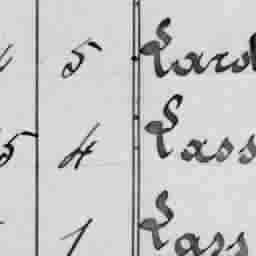 5 Lard
5 4 Lass
1 Lass